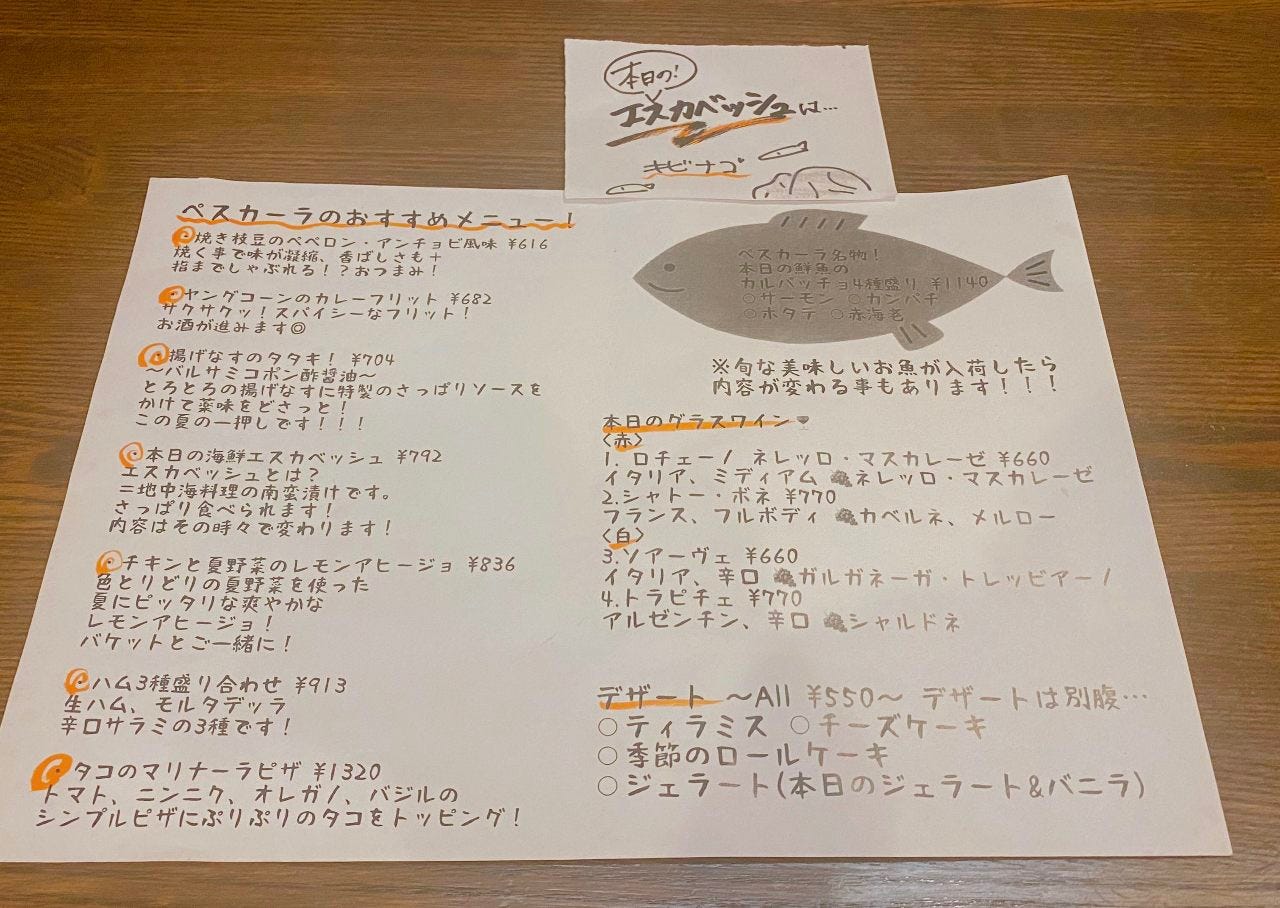 本日の!
エスカベッシュは…
キビナゴ
ペスカーラのおすすめメニュー!
焼き枝豆のペペロン・アンチョビ風味 ¥616
焼く事で味が凝縮、香ばしさも+
指までしゃぶれる!?おつまみ!
ヤングコーンのカレーフリット ¥682
サクサクッ!スパイシーなフリット!
お酒が進みます◎
揚げなすのタタキ! ¥704
〜バルサミコポン酢醤油〜
とろとろの揚げなすに特製のさっぱりソースを
かけて薬味をどさっと!
この夏の一押しです!!!
本日の海鮮エスカベッシュ ¥792
エスカベッシュとは?
=地中海料理の南蛮漬けです。
さっぱり食べられます!
内容はその時々で変わります!
チキンと夏野菜のレモンアヒージョ ¥836
色とりどりの夏野菜を使った
夏にピッタリな爽やかな
レモンアヒージョ!
バケットとご一緒に!
ハム3種盛り合わせ ¥913
生ハム、モルタデッラ
辛口サラミの3種です!
タコのマリナーラピザ ¥1320
トマト、ニンニク、オレガノ、バジルの
シンプルピザにぷりぷりのタコをトッピング!
ペスカーラ名物!
本日の鮮魚の
カルパッチョ4種盛り ¥1140
○サーモン ○カンパチ
○ホタテ ○赤海老
※旬な美味しいお魚が入荷したら
内容が変わる事もあります!!!
本日のグラスワイン🍷
〈赤〉
1. ロチェーノ ネレッロ・マスカレーゼ ¥660
イタリア、ミディアム 🍇ネレッロ・マスカレーゼ
2.シャトー・ボネ ¥770
フランス、フルボディ 🍇カベルネ、メルロー
〈白〉
3.ソアーヴェ ¥660
イタリア、辛口 🍇ガルガネーガ・トレッビアーノ
4.トラピチェ ¥770
アルゼンチン、辛口 🍇シャルドネ
デザート 〜All ¥550〜 デザートは別腹…
○ティラミス ○チーズケーキ
○季節のロールケーキ
○ジェラート(本日のジェラート&バニラ)